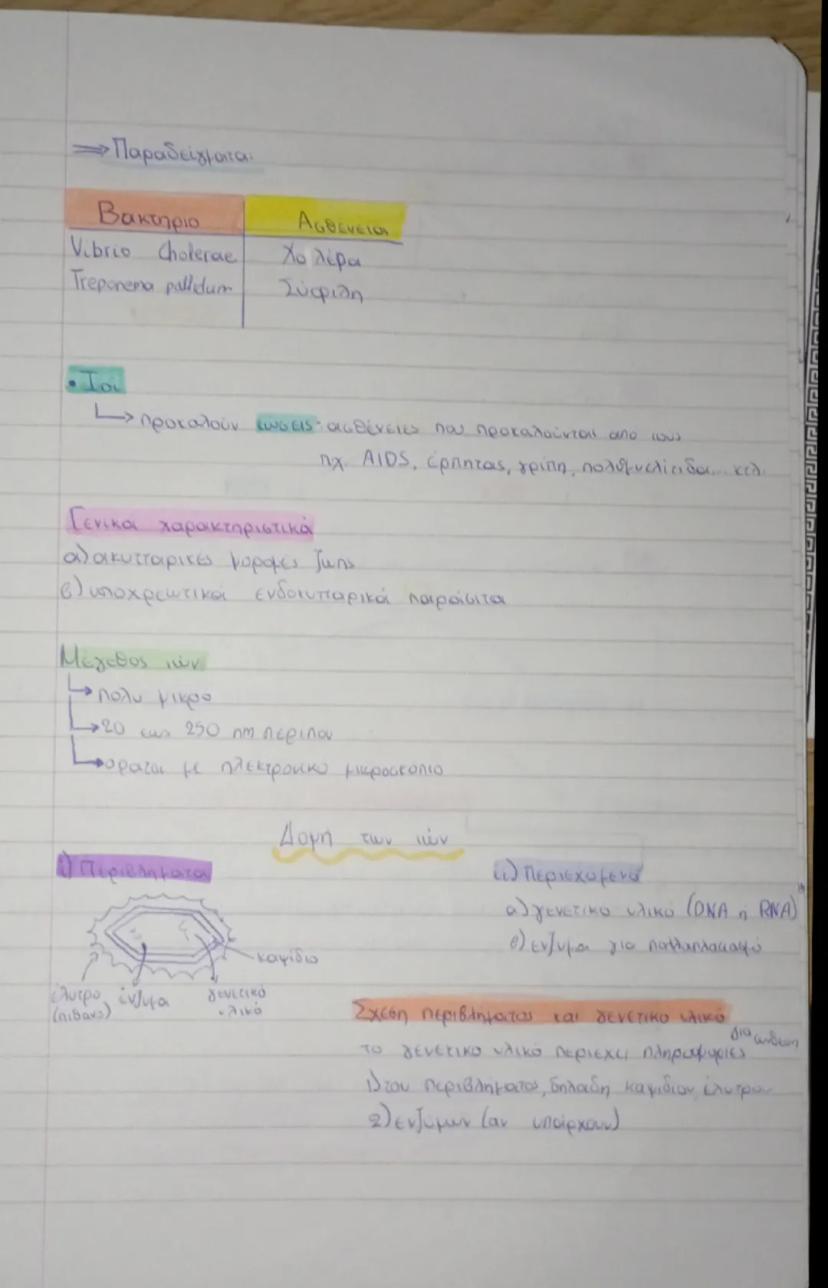 ⇒ Παραδείγματα.
Βακτηριο Ασθενεια
Vibrio Cholerae Χολέρα
Treponema pallidum Σύφιλη
• Ιοί
↳ προκαλούν ιώσεις: ασθένειες που προκαλούνται απο ιους
πχ. AIDS, έρπητας, γρίπη, πολυομελίτιδα... κτλ.
Γενικά χαρακτηριστικά
α) ακυτταρικες μορφες ζωης
β) υποχρεωτικά ενδοκυτταρικά παράσιτα
Μέγεθος ιών
↳ πολυ μικρο
↳ 20 εως 250 nm περιπου
↳ ορατοι με ηλεκτρονικο μικροσκοπιο
Δομή των ιών
i) Περιβληματα
ii) Περιεχομενο
α) γενετικο υλικό (DNA ή RNA)
β) ενζυμα για πολλαπλασιασμό
καψίδιο
έλυτρο (πιθανό)
ένζυμα
γενετικό υλικό
Σχεση περιβληματος και γενετικο υλικό
το γενετικο υλικό περιεχει πληροφορίες δια συνθεση
1) του περιβλήματος, δηλαδη καψιδιου, έλυτρου
2) ενζύμων (αν υπάρχουν)